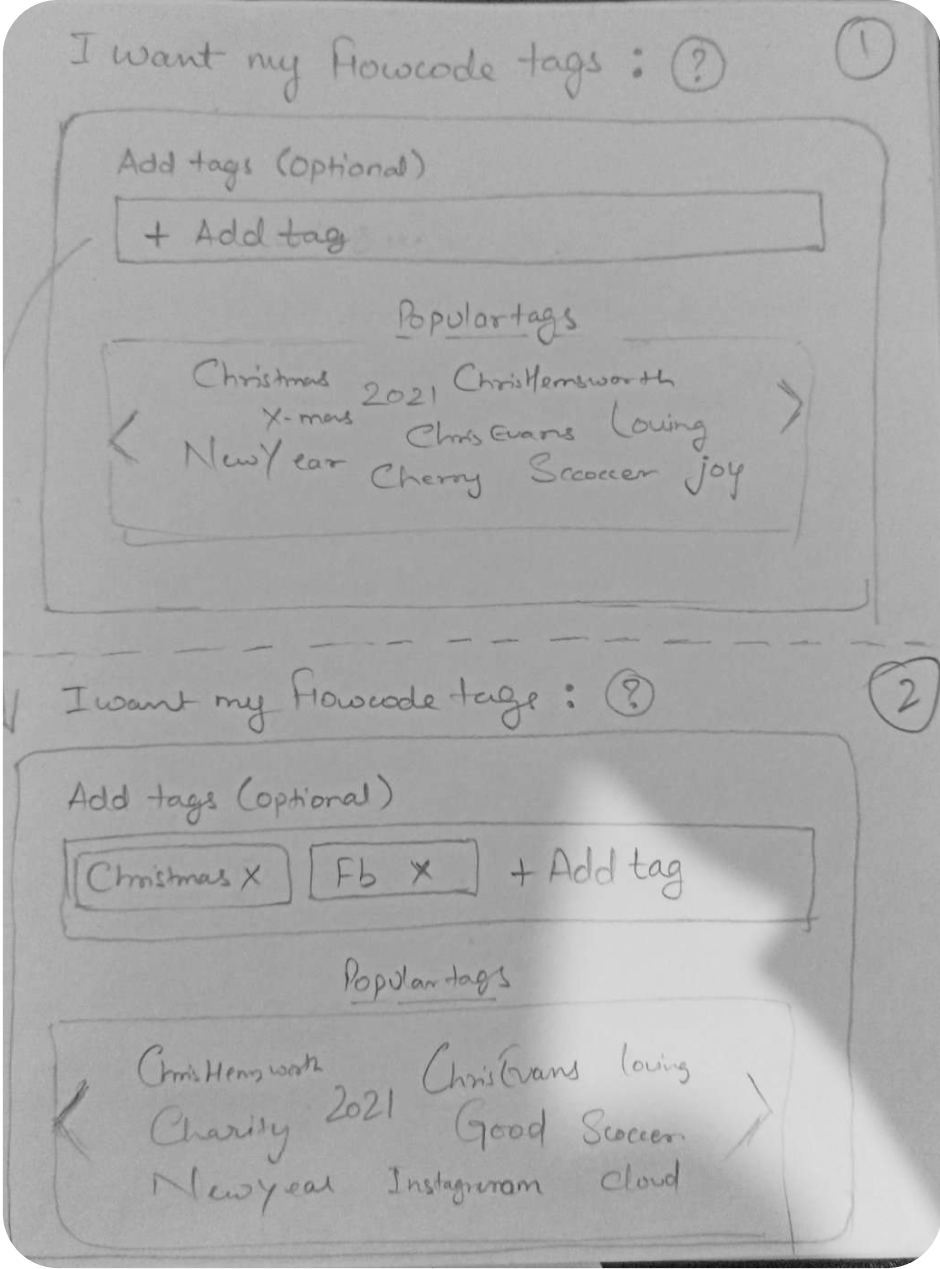 I want my flowcode tags : ? 1
Add tags (optional)
+ Add tag
Popular tags
Christmas 2021 ChrisHemsworth
X-mas ChrisEvans Loving
NewYear Cherry Sccoccer joy
< >
I want my flowcode tags : ? 2
Add tags (optional)
Christmas X Fb X + Add tag
Popular tags
ChrisHemsworth ChrisEvans loving
Charity 2021 Good Scoccer
Newyear Instagreram cloud
< >